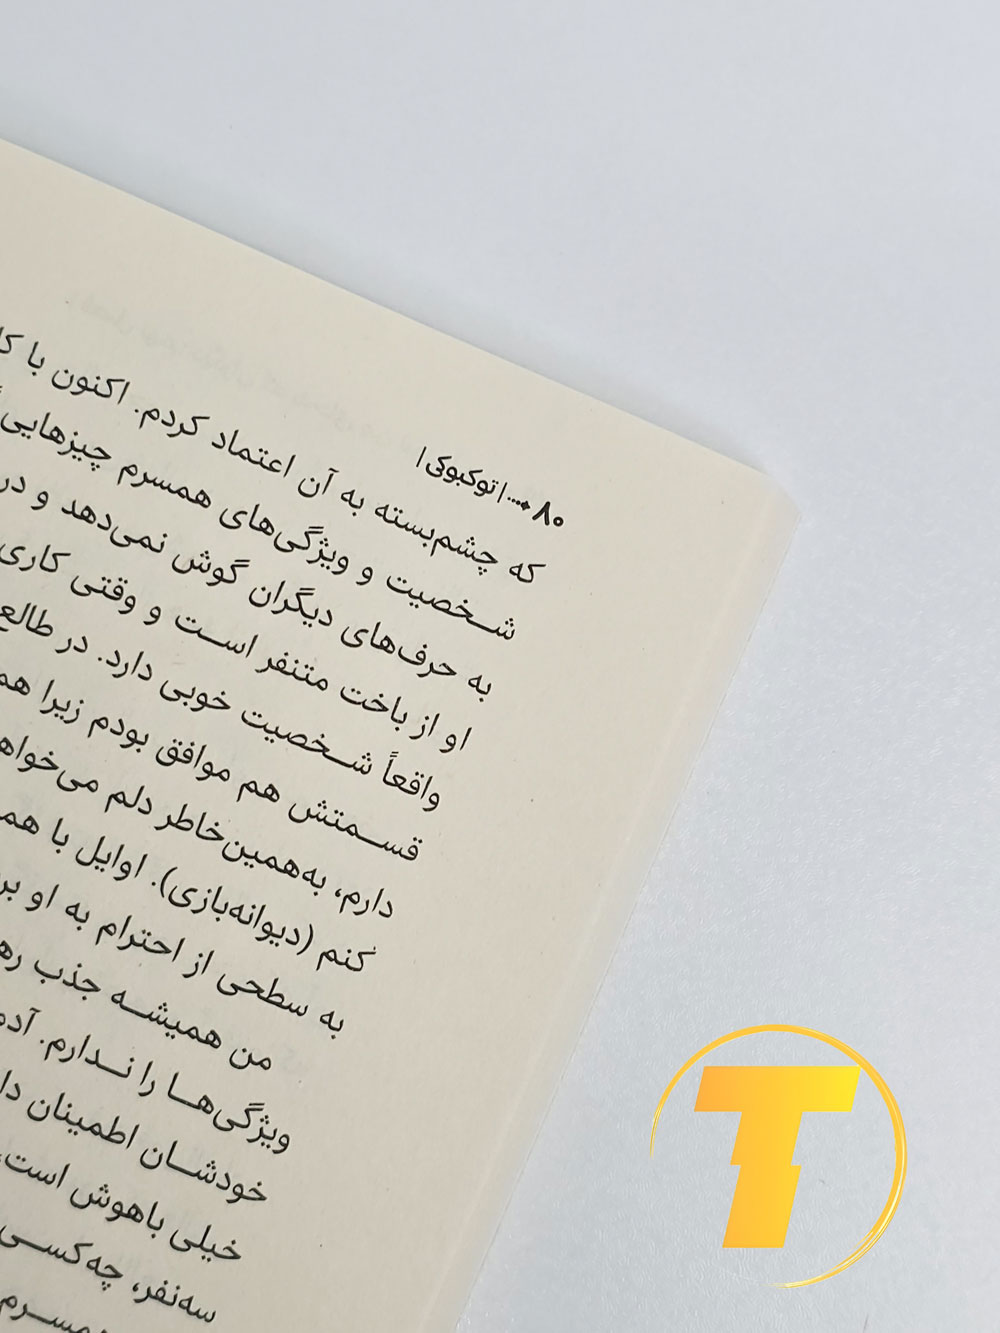 ۸۰ ....| توکیوکی |
که چشم‌بسته به آن اعتماد کردم. اکنون با
شخصیت و ویژگی‌های همسرم چیزهایی
به حرف‌های دیگران گوش نمی‌دهد و در
او از باخت متنفر است و وقتی کاری
واقعاً شخصیت خوبی دارد. در طالع
قسمتش هم موافق بودم زیرا
دارم، به‌همین‌خاطر دلم
کنم (دیوانه‌بازی). اوایل با
به سطحی از احترام به او
من همیشه جذب
ویژگی‌ها را ندارم.
خودشان اطمینان
خیلی باهوش است،
سه‌نفر، چه‌کسی
T